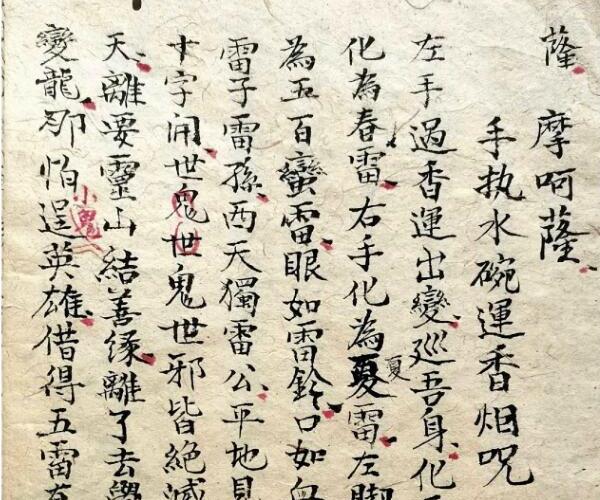 薩 摩呵薩
手执水碗運香烟呪
左手過香運出變巡吾身化
化為春雷右手化為夏雷左脚
夏
為五百蠻雷眼如雷鈴口如血
雷子雷孫西天獨雷公平地見
十字闭世鬼世鬼世邪皆絶滅
天離要靈山結善緣離了去學
小鬼
變龍那怕逞英雄借得五雷